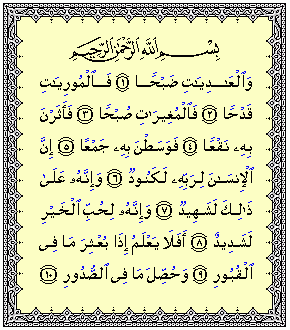 بِسْمِ ٱللَّهِ ٱلرَّحْمَٰنِ ٱلرَّحِيمِ
وَٱلْعَٰدِيَٰتِ ضَبْحًا ١ فَٱلْمُورِيَٰتِ
قَدْحًا ٢ فَٱلْمُغِيرَٰتِ صُبْحًا ٣ فَأَثَرْنَ
بِهِۦ نَقْعًا ٤ فَوَسَطْنَ بِهِۦ جَمْعًا ٥ إِنَّ
ٱلْإِنسَٰنَ لِرَبِّهِۦ لَكَنُودٌ ٦ وَإِنَّهُۥ عَلَىٰ
ذَٰلِكَ لَشَهِيدٌ ٧ وَإِنَّهُۥ لِحُبِّ ٱلْخَيْرِ
لَشَدِيدٌ ٨ أَفَلَا يَعْلَمُ إِذَا بُعْثِرَ مَا فِى
ٱلْقُبُورِ ٩ وَحُصِّلَ مَا فِى ٱلصُّدُورِ ١٠